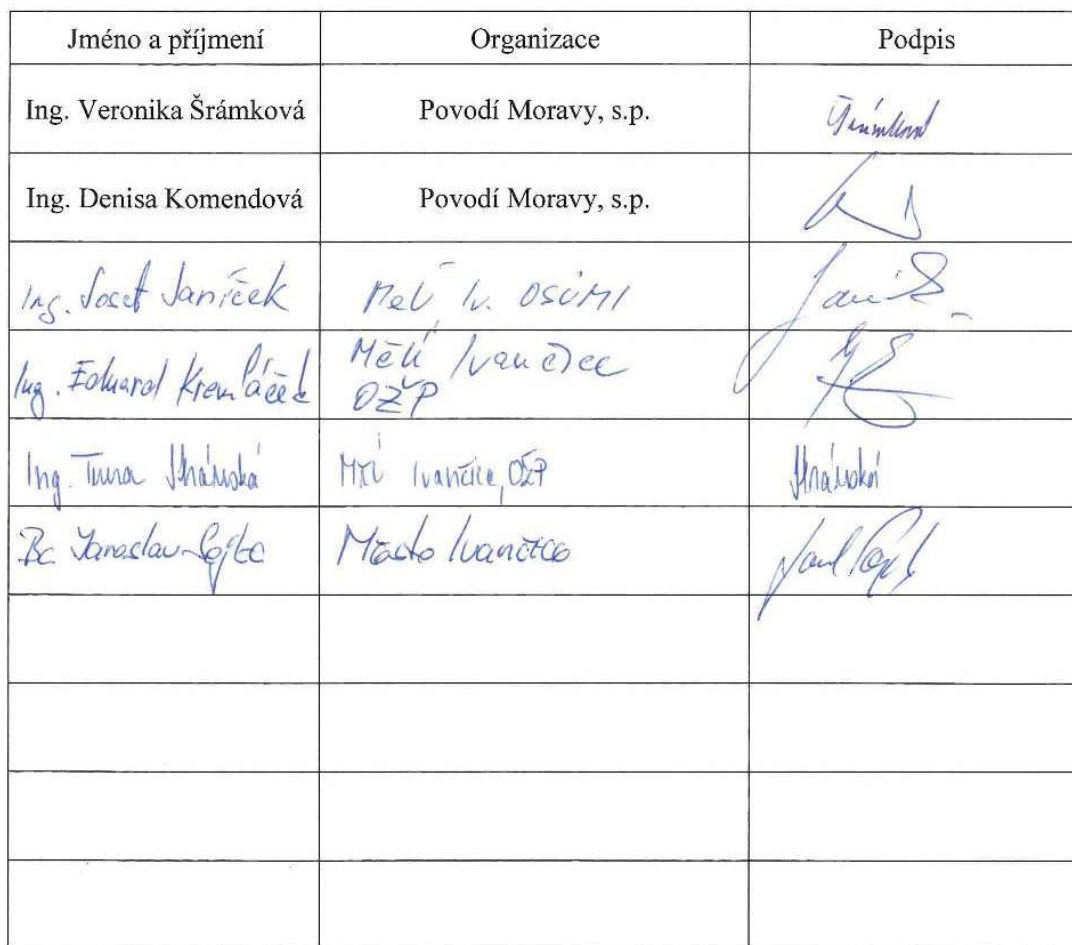 Jméno a příjmení Organizace Podpis
Ing. Veronika Šrámková Povodí Moravy, s.p. Šrámková
Ing. Denisa Komendová Povodí Moravy, s.p.
Ing. Josef Janíček MeÚ Iv. OSÚMI
Ing. Eduard Kremláček MěÚ Ivančice
OŽP
Ing. Stránská MěÚ Ivančice, OŽP Stránská
Bc Jaroslav Sojka Město Ivančice